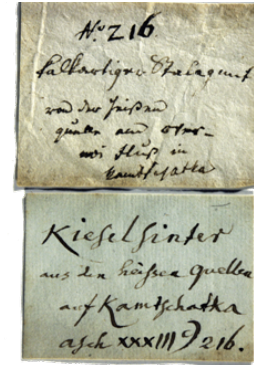 No 216
kalkartiger Stalagmit
von der heißen
quelle am
Fluß in
Kamtschatka
Kieselsinter
aus den heissen Quellen
auf Kamtschatka
asch XXXIII 9 216.